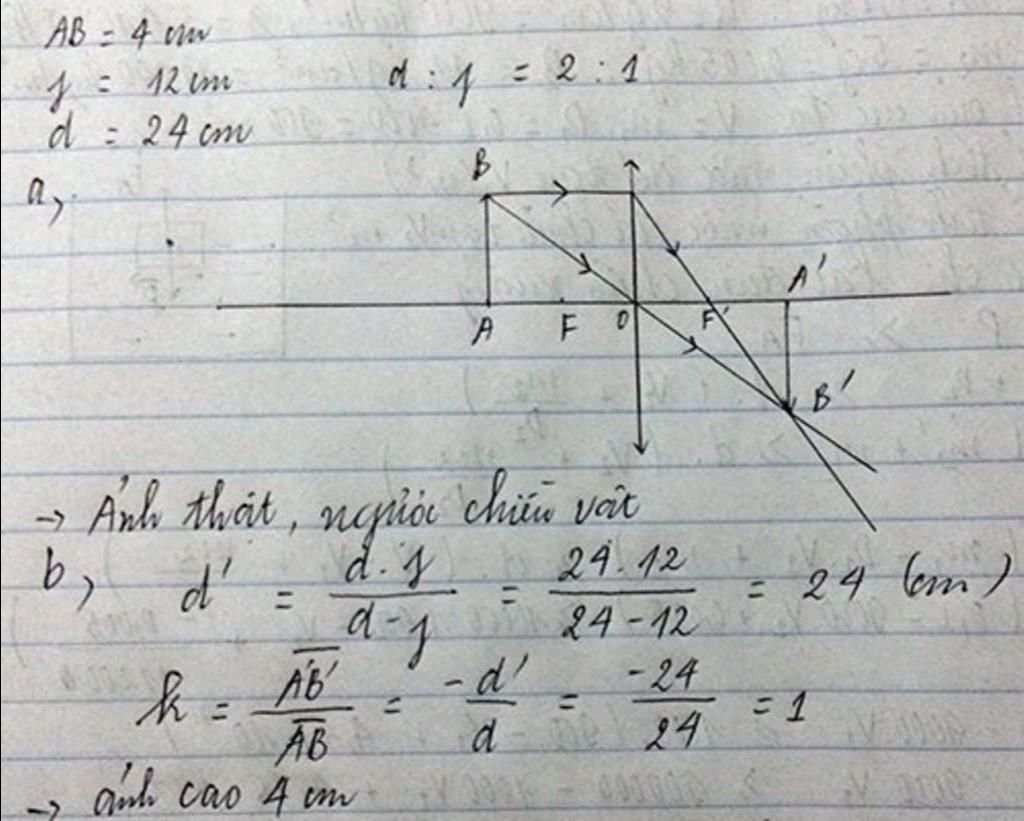 AB = 4 cm
f = 12 cm d : f = 2 : 1
d = 24 cm
a,
B
A'
A F O F'
B'
→ Ảnh thật, ngược chiều vật
b, d' = d.f / d-f = 24.12 / 24-12 = 24 (cm)
k = A'B' / AB = -d' / d = -24 / 24 = 1
→ ảnh cao 4 cm